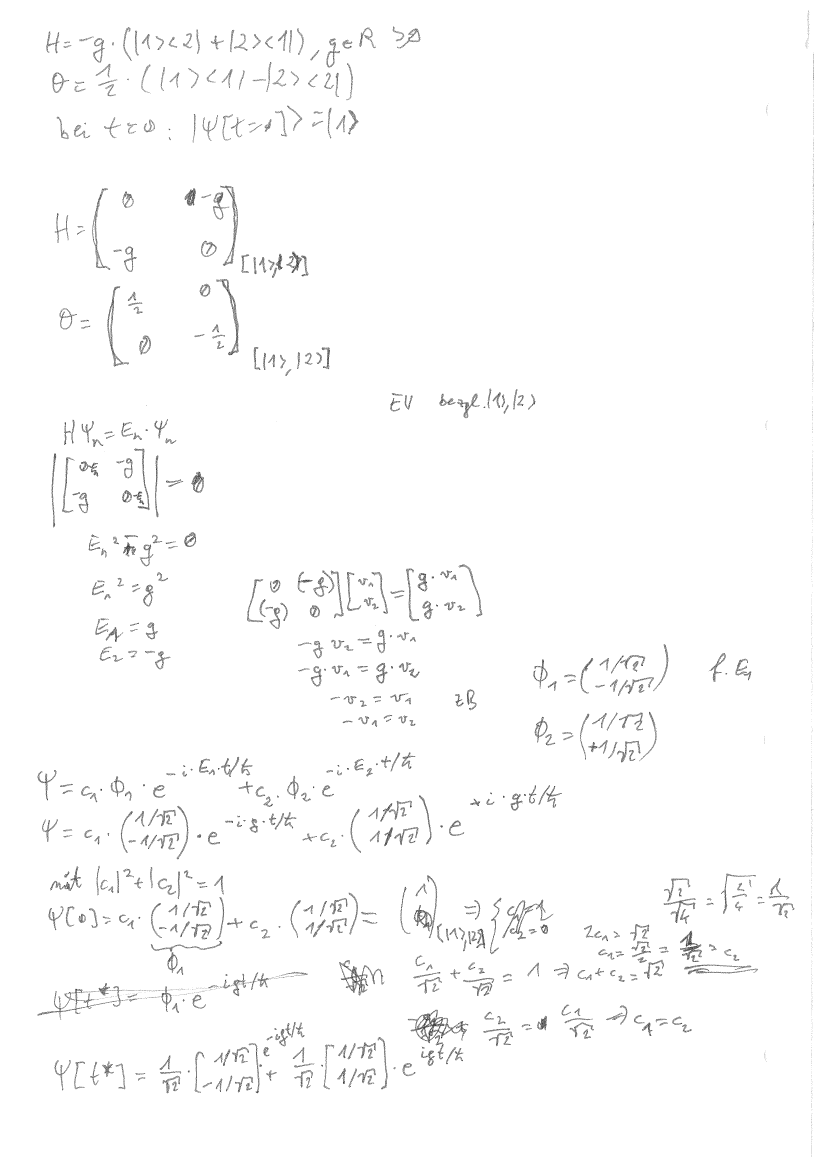 H = -g · (|1><2| + |2><1|), g∈R >0
θ = 1/2 · (|1><1| - |2><2|)
bei t=0: |Ψ[t=0]> = |1>
H = [0 -g; -g 0] [|1>,|2>]
θ = [1/2 0; 0 -1/2] [|1>,|2>]
EV bezgl. |1>,|2>
H Ψn = En · Ψn
|[0-En -g; -g 0-En]| = 0
En² - g² = 0
En² = g²
E1 = g
E2 = -g
[0 (-g); (-g) 0] [v1; v2] = [g·v1; g·v2]
-g v2 = g·v1
-g·v1 = g·v2
-v2 = v1 zB
-v1 = v2
ϕ1 = (1/√2; -1/√2) f. E1
ϕ2 = (1/√2; +1/√2)
Ψ = c1 · ϕ1 · e^(-i·E1·t/ħ) + c2 · ϕ2 · e^(-i·E2·t/ħ)
Ψ = c1 · (1/√2; -1/√2) · e^(-i·g·t/ħ) + c2 · (1/√2; 1/√2) · e^(+i·g·t/ħ)
mit |c1|² + |c2|² = 1
Ψ[0] = c1 · (1/√2; -1/√2) + c2 · (1/√2; 1/√2) = (1; 0) [|1>,|2>] => { c1=1 c2=0
ϕ1
√2/√4 = √(2/4) = 1/√2
2c1 = √2
c1 = √2/2 = 1/√2 = c2
Ψ[t*] = ϕ1 · e^(-igt/ħ)
c1/√2 + c2/√2 = 1 => c1 + c2 = √2
c2/√2 = c1/√2 => c1 = c2
Ψ[t*] = 1/√2 · [1/√2; -1/√2] e^(-igt/ħ) + 1/√2 · [1/√2; 1/√2] · e^(igt/ħ)